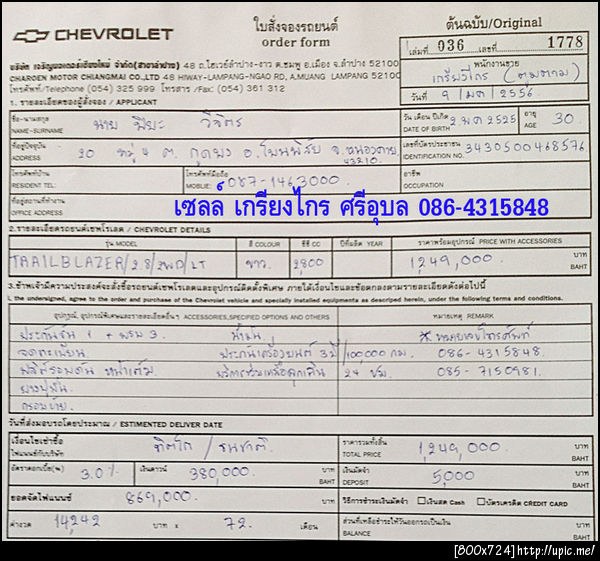 CHEVROLET
ใบสั่งจองรถยนต์
order form
ต้นฉบับ/Original
เล่มที่ 036 เลขที่ 1778
บริษัท เจริญมอเตอร์เชียงใหม่ จำกัด(สาขาลำปาง) 48 ถ.ไฮเวย์ลำปาง-งาว ต.ชมพู อ.เมือง จ.ลำปาง 52100
CHAROEN MOTOR CHIANGMAI CO.,LTD 48 HIWAY-LAMPANG-NGAO RD, A.MUANG LAMPANG 52100
โทรศัพท์/Telephone (054) 325 999 โทรสาร /Fax: (054) 361 312
พนักงานขาย
เกรียงไกร
วันที่ 9 / มค / 2556
1. รายละเอียดของผู้สั่งจอง / APPLICANT
ชื่อ-นามสกุล
NAME-SURNAME นาย ปิยะ วิจิตร
วัน เดือน ปีเกิด
DATE OF BIRTH 2 มค 2525
อายุ
AGE 30
ที่อยู่ปัจจุบัน
ADDRESS 20 หมู่ 4 ต. กุดบง อ. โพนพิสัย จ. หนองคาย 43210
เลขที่บัตรประชาชน
IDENTIFICATION NO. 3430500468576
โทรศัพท์บ้าน
RESIDENT TEL:
โทรศัพท์มือถือ
MOBLIE: 087-1463000
อาชีพ
OCCUPATION
ที่อยู่สถานที่ทำงาน
OFFICE ADDRESS
เซลล์ เกรียงไกร ศรีอุบล 086-4315848
2.รายละเอียดรถยนต์เชฟโรเลต / CHEVROLET DETAILS
รุ่น MODEL สี COLOUR ซีซี CC ปีที่ผลิต YEAR ราคาพร้อมอุปกรณ์ PRICE WITH ACCESSORIES
TRAILBLAZER/2.8/2WD/LT ขาว 2,800 1,249,000. บาท
BAHT
3.ข้าพเจ้ามีความประสงค์จะสั่งซื้อรถยนต์เชฟโรเลตและอุปกรณ์ติดตั้งพิเศษ ภายใต้เงื่อนไขและข้อตกลงตามรายละเอียดดังต่อไปนี้
I, the undersigned, agree to the order and purchase of the Chevrolet vehicle and specially installed equipments as described herein, under the following terms and conditions.
อุปกรณ์, อุปกรณ์พิเศษและรายละเอียดอื่นๆ ACCESSORIES,SPECIFIED OPTIONS AND OTHERS หมายเหตุ REMARK
ประกันชั้น 1 + พรบ 3. น้ำมัน หมายเลขโทรศัพท์
จดทะเบียน ประกันเครื่องยนต์ 3 ปี /100,000 กม. 086-4315848.
ฟิล์มรอบคัน หน้าเต็ม บริการช่วยเหลือฉุกเฉิน 24 ชม. 085-7150981.
ยางปูพื้น
กรอบป้าย
วันที่ส่งมอบรถโดยประมาณ / ESTIMENTED DELIVER DATE
เงื่อนไขเช่าซื้อ
ไฟแนนซ์กับบริษัท ทิสโก้ / ธนชาติ
ราคารวมทั้งสิ้น
TOTAL PRICE 1,249,000. บาท
BAHT
อัตราดอกเบี้ย(%) 3.0% เงินดาวน์ 380,000. บาท
BAHT
เงินมัดจำ
DEPOSIT 5,000 บาท
BAHT
ยอดจัดไฟแนนซ์ 869,000.
วิธีการชำระเงินมัดจำ เงินสด Cash บัตรเครดิต CREDIT CARD
ค่างวด 14,242 บาท x 72. เดือน
ส่วนที่เหลือชำระให้วันออกรถเป็นเงิน
BALANCE บาท
BAHT
[800x724]http://upic.me/